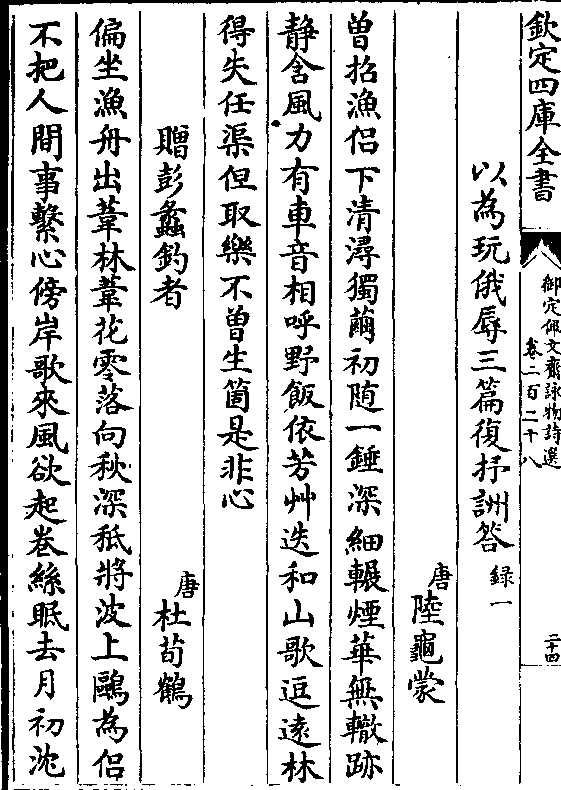 欽定四庫全書
御定佩文齋詠物詩選
卷二百二十八
二十四
以為玩俄辱三篇復抒詶答 錄一
唐 陸龜蒙
曾招漁侶下清潯獨繭初隨一錘深細輾煙華無轍跡
静含風力有車音相呼野飯依芳艸迭和山歌逗遠林
得失任渠但取樂不曾生箇是非心
贈彭蠡釣者
唐 杜荀鶴
偏坐漁舟出葦林葦花零落向秋深秖將波上鷗為侶
不把人間事繫心傍岸歌來風欲起卷絲眠去月初沈